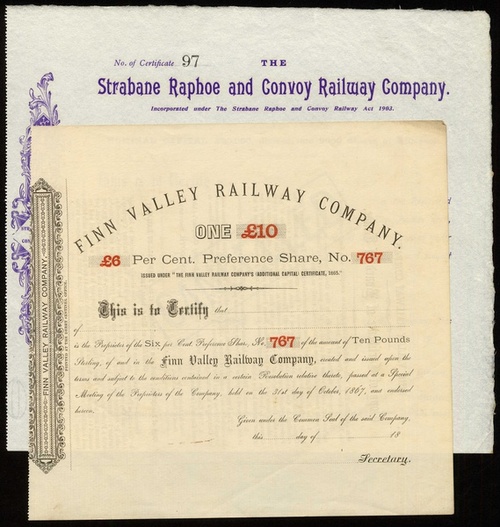 No. of Certificate 97 THE
Strabane Raphoe and Convoy Railway Company.
Incorporated under The Strabane Raphoe and Convoy Railway Act 1903.
FINN VALLEY RAILWAY COMPANY.
ONE £10
£6 Per Cent. Preference Share, No. 767
ISSUED UNDER "THE FINN VALLEY RAILWAY COMPANY'S (ADDITIONAL CAPITAL) CERTIFICATE, 1865."
This is to Certify that
of
is the Proprietor of the Six per Cent. Preference Share, No. 767 of the amount of Ten Pounds
Sterling, of and in the Finn Valley Railway Company, created and issued upon the
terms and subject to the conditions contained in a certain Resolution relative thereto, passed at a Special
Meeting of the Proprietors of the Company, held on the 31st day of October, 1867, and endorsed
hereon.
Given under the Common Seal of the said Company,
this day of 18
Secretary.
FINN VALLEY RAILWAY COMPANY.